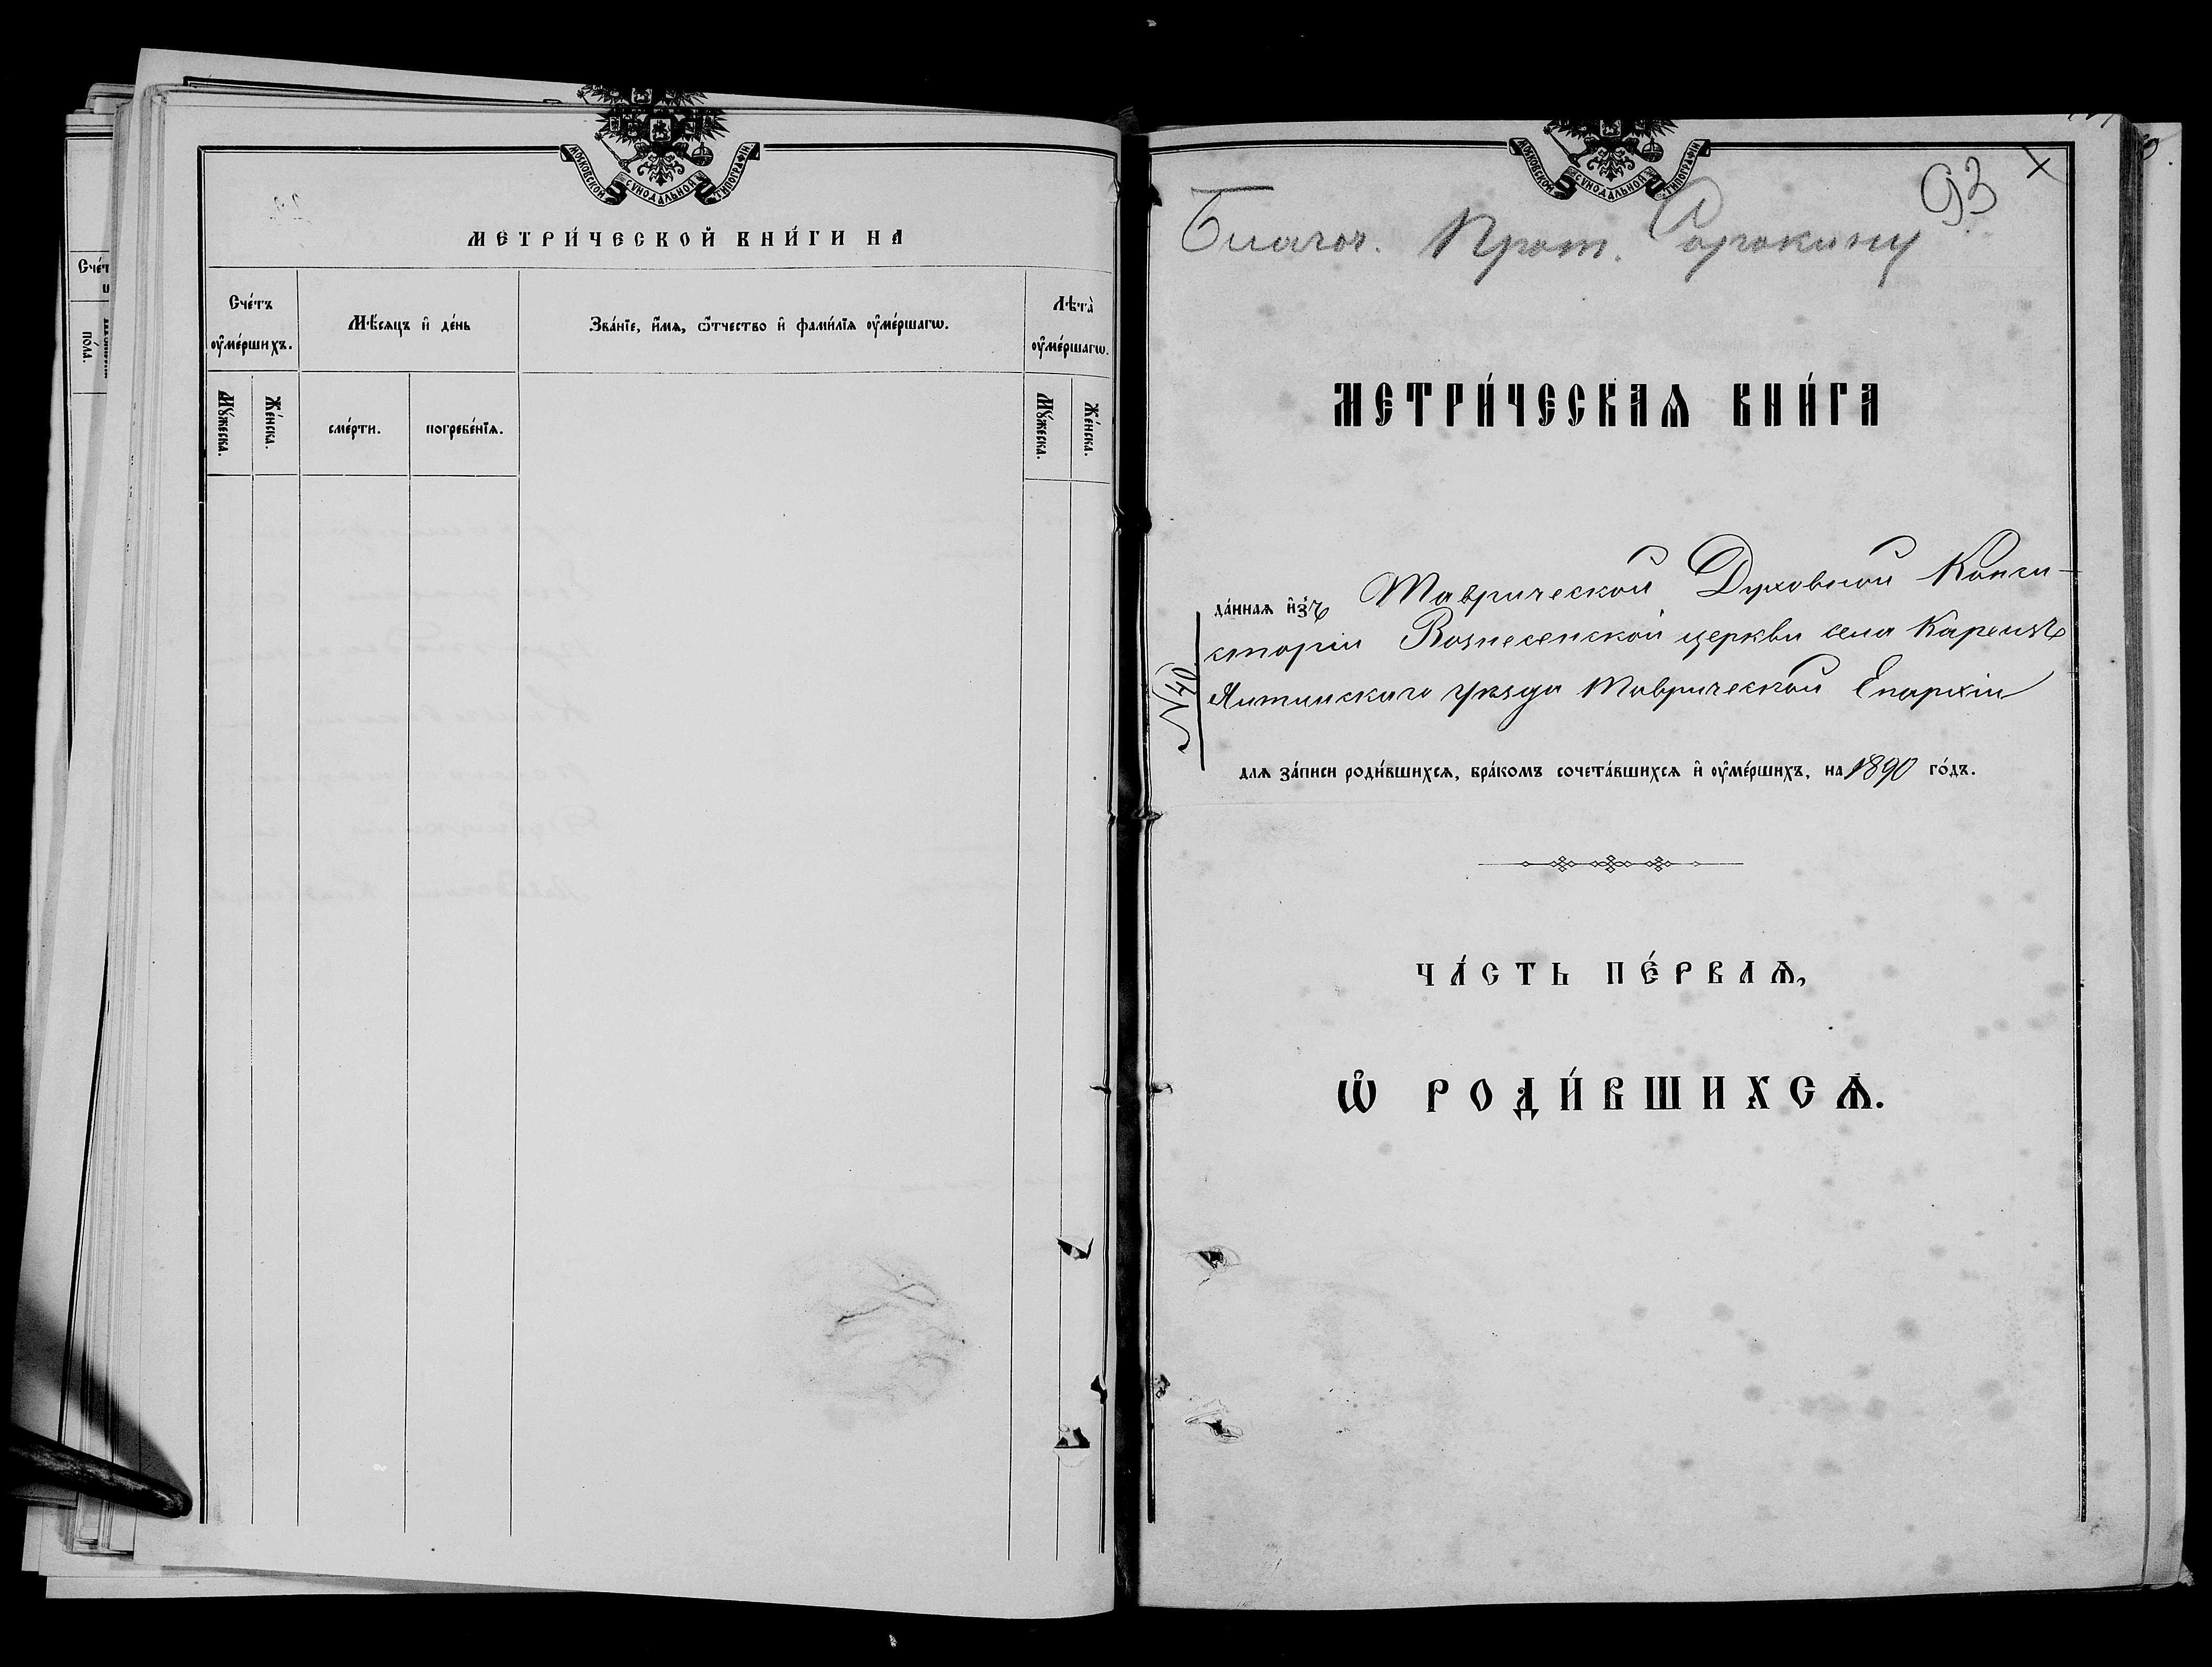 МОСКОВСКОЙ СѴНОДАЛЬНОЙ ТИПОГРАФІИ
МЕТРИ́ЧЕСКОЙ КНИ́ГИ НА
Сче́тъ оу҆ме́ршихъ.
Мѣ́сяцъ и҆ де́нь
Зва́нїе, и҆́мѧ, ѻ҆́тчество и҆ фами́лїѧ оу҆ме́ршагѡ.
Лѣта̀ оу҆ме́ршагѡ.
Мꙋ́жеска.
Же́нска.
сме́рти.
погребе́нїѧ.
Мꙋ́жеска.
Же́нска.
Сче́т
по́ла.
МОСКОВСКОЙ СѴНОДАЛЬНОЙ ТИПОГРАФІИ
93
Благоч. Прот. Сорокину
МЕТРИ́ЧЕСКАѦ КНИ́ГА
да́ннаѧ и҆зъ Таврической Духовной Конси-
сторіи Вознесенской церкви села Кореизъ
Ялтинскаго уѣзда Таврической Епархіи
№ 40
длѧ за́писи роди́вшихсѧ, бра́комъ сочета́вшихсѧ и҆ оу҆ме́ршихъ, на 1890 го́дъ.
ЧА́СТЬ ПЕ́РВАѦ,
Ѡ҆ РОДИ́ВШИХСѦ.